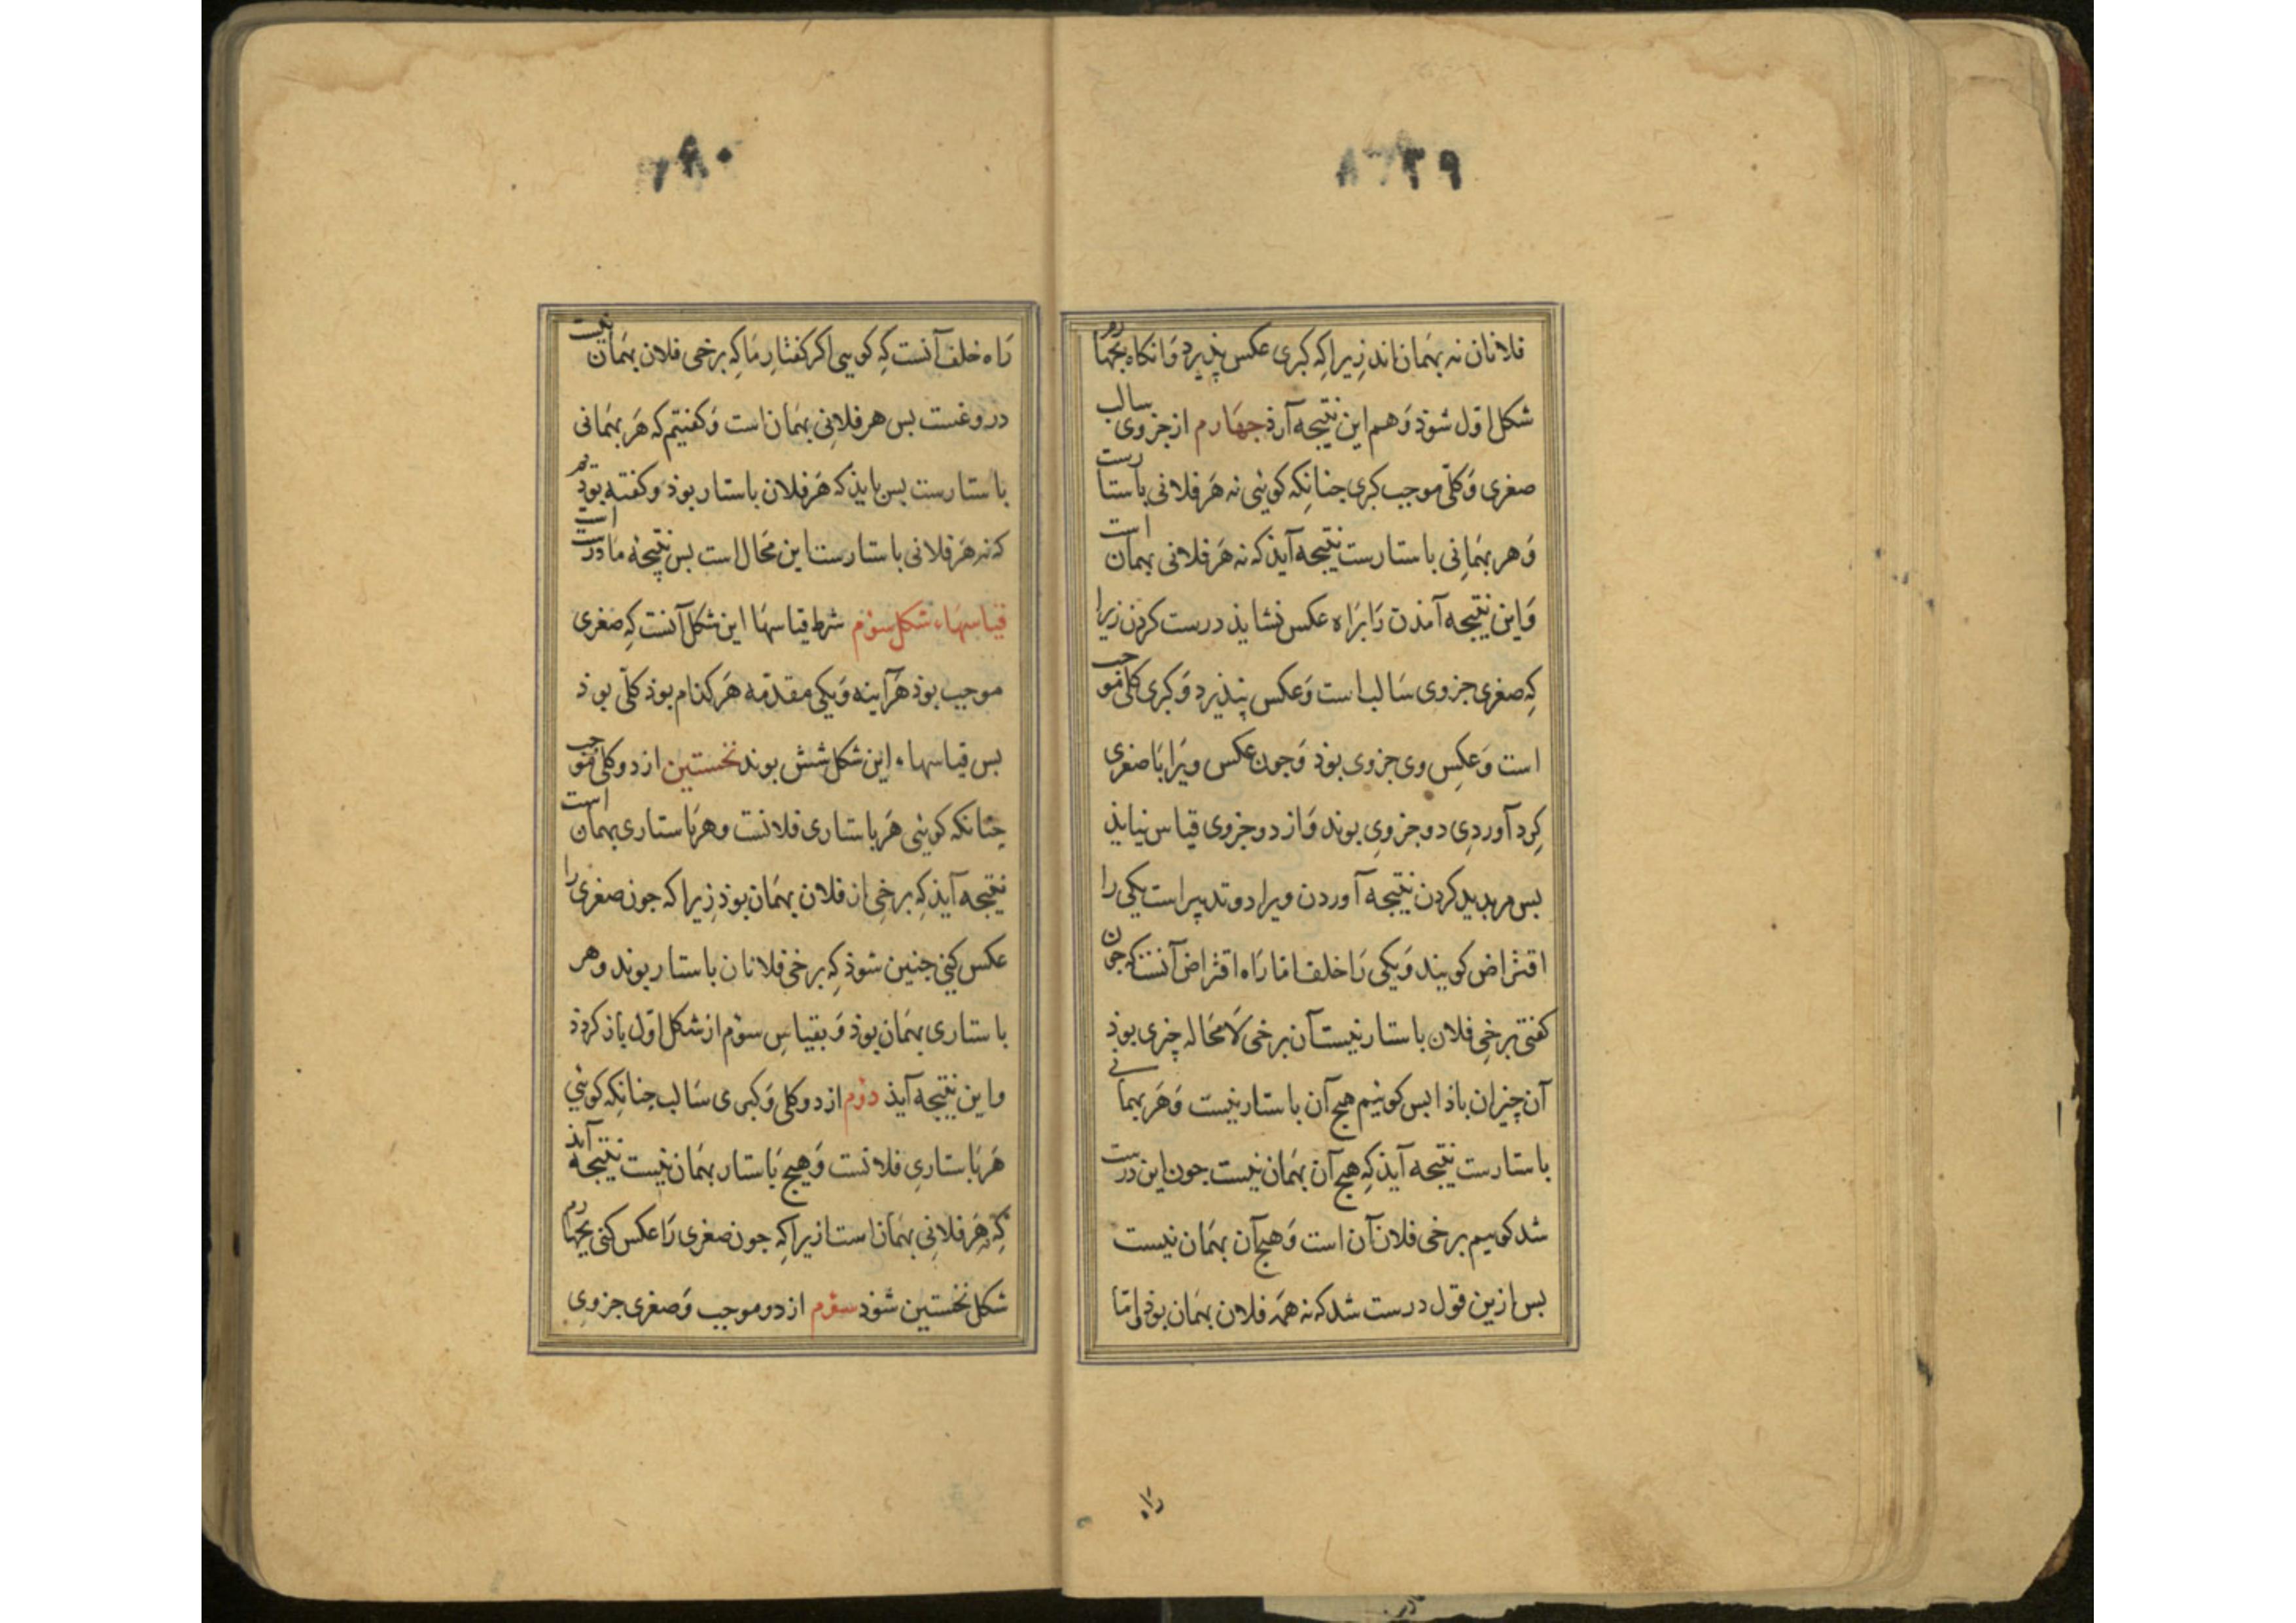 ۳۹
فلانان نه بهَمان‌اند زیرا کِه کبری عکس پذیرد وَانکاه بچهارم
شکل اوّل شوذ وَهم این نتیجه آرذ جهَارم از جزوی سالب
صغری وَکلّی موجب کبری جنانکِه کویٔی نه هَر فلانی باستارست
وَهر بهمَانی باستارست نتیجه آیذ که نه هَر فلانی بهمان است
وَاین نتیجه آمذن رَا برَاه عکس نشایذ درست کردن زیرا
کِه صغری جزوی سَالب است وَعکس نپذیرد وَکبری کلّی موجب
است وَعکسِ وی جزوی بوذ وَجون عکس ویرَا بَا صغری
کِرد آوردی دو جزوی بوند وَاز دو جزوی قیاس نیایذ
بس مر بدید کردن نتیجه آوردن ویرا دو تدبیر است یکی را
افتراض کویند وَیکی رَا خلف اما رَاه افتراض آنست که جون
کفتی برخِی فلان باستار نیست آن برخی لاَمحَاله چیزی بوذ
آن چیز ان باذا بس کوییٔم هیچ آن باستار نیست وَهَر بهمانی
باستارست نتیجه آیذ کِه هیچ آن بهَمان نیست جون این درست
شد کوییم برخی فلان آن است وَهیچ آن بهَمان نیست
بس ازین قول درست شد که نه همَه فلان بهَمان بوذ وامّا
رَاه
۴۰
رَاه خلف آنست کِه کویی اکر کفتارِ مَا کِه برخی فلان بهَمان نیست
دروغست بس هر فلانِی بهَمان است وَکفتیٔم که هَر بهَمانی
باستارست بس بایذ که هَر فلان باستار بوذ و کفته بوذیم
که نه هَر فلانی باستارست این محَال است بس نتیجهٔ مَا درست است
قیاسهَاء شکل سؤم شرط قیاسهَا این شکل آنست کِه صغری
موجب بوذ هَرآینه وَیکی مقدّمه هَر کذام بوذ کلّی بوذ
بس قیاسهاء این شکل شش بوند نخستین از دو کلّی موجب
چنانکه کویٔی هَر باستاری فلانست وهر بَاستاری بهمان است
نتیجه آیذ کِه برخِی از فلان بهَمان بوذ زِیرا که جون صغری را
عکس کنی جنین شوذ کِه برخی فلانان باستار بوند وهر
باستاری بهَمان بوذ وَبقیاسِ سؤم از شکل اوّل باز کردذ
واین نتیجه آیذ دؤم از دو کلی وَکبری سَالب جنانکِه کویٔی
هَر بَاستاری فلانست وَهیچ بَاستار بهَمان نیست نتیجه آیذ
کِه نه هَر فلانی بهَمان است ازیرا کِه جون صغری رَا عکس کنی بچهارم
شکل نخستین شوذ سؤم از دو موجب وَصغری جزوی